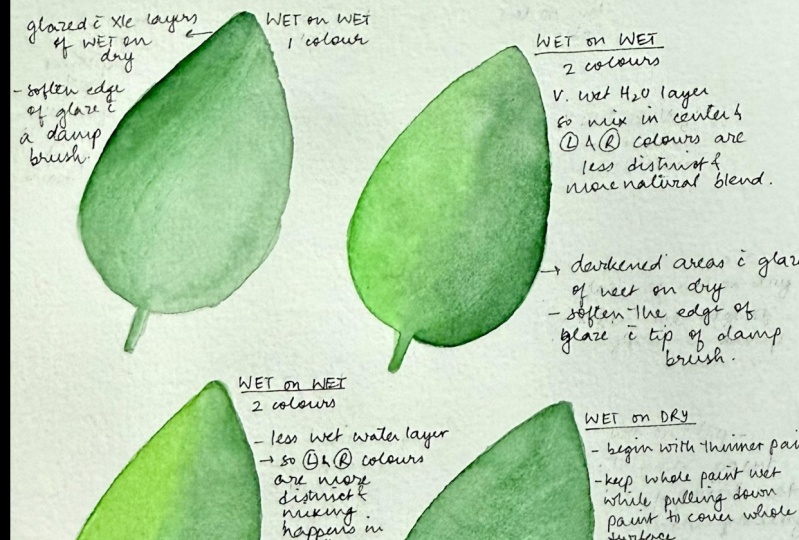 glazed c̄ Xle layers
of WET on
dry
- soften edge
of glaze c̄
a damp
brush.
WET on WET
1 colour
WET on WET
2 colours
V. wet H2O layer
so mix in center &
Ⓛ & Ⓡ colours are
less distinct &
more natural blend.
→ darkened areas c̄ glaz
of wet on dry
- soften the edge of
glaze c̄ tip of damp
brush.
WET on WET
2 colours
- less wet water layer
→ so Ⓛ & Ⓡ colours
are more
distinct &
mixing
happens in
WET on DRY
- begin with thinner pai
- keep whole paint wet
while pulling down
paint to cover whole
surface